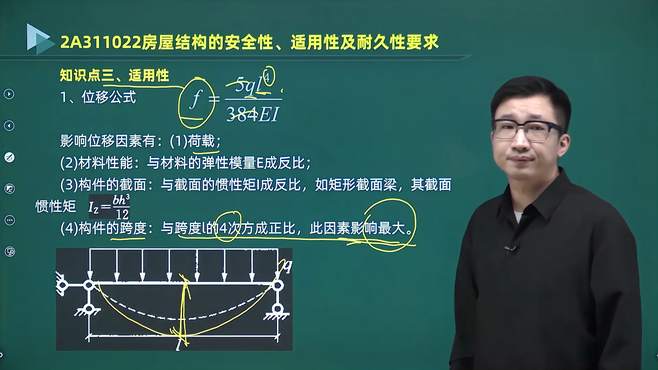 2A311022房屋结构的安全性、适用性及耐久性要求
知识点三、适用性
1、位移公式
f = 5ql⁴ / 384EI
影响位移因素有：(1)荷载；
(2)材料性能：与材料的弹性模量E成反比；
(3)构件的截面：与截面的惯性矩I成反比，如矩形截面梁，其截面
惯性矩 I_z = bh³/12
(4)构件的跨度：与跨度l的4次方成正比，此因素影响最大。
q
l